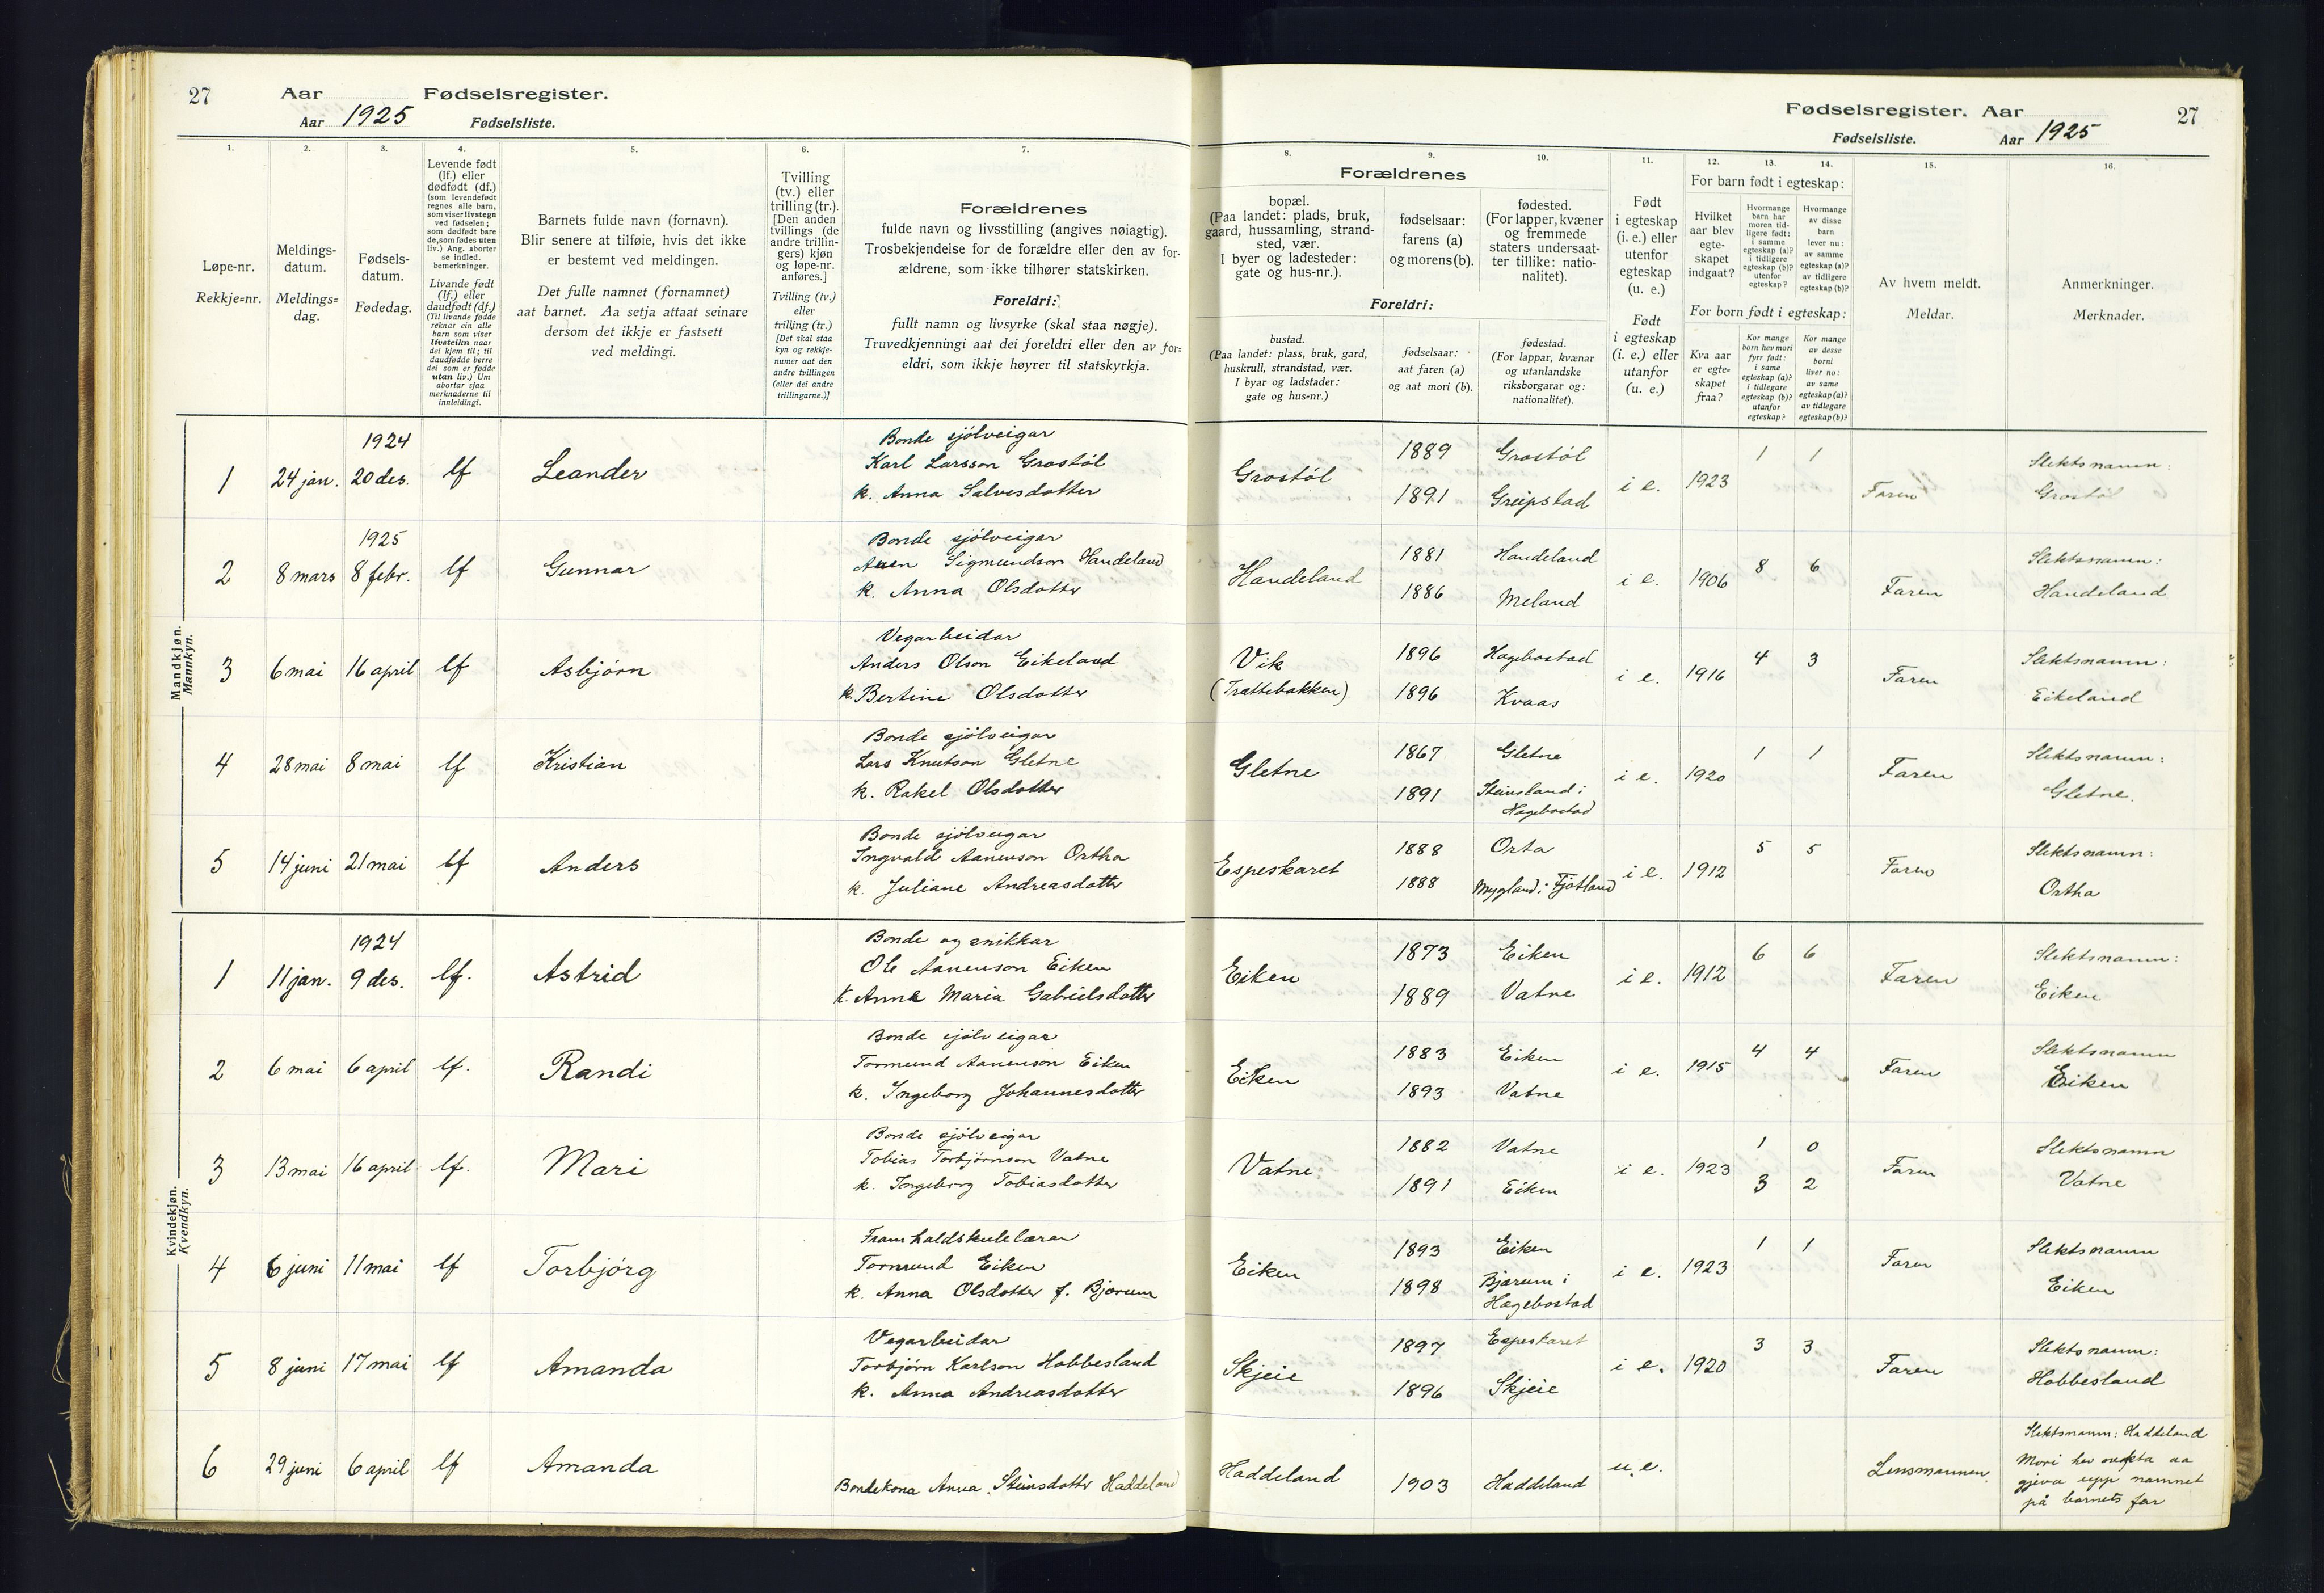 27
Aar
Fødselsregister.
Aar 1925
Fødselsliste.
Fødselsregister. Aar
27
Fødselsliste.
Aar 1925
1.
2.
3.
4.
5.
6.
7.
8.
9.
10.
11.
12.
13.
14.
15.
16.
Løpe-nr.
Rekkje=nr.
Meldings-
datum.
Meldings=
dag.
Fødsels-
datum.
Fødedag.
Levende født
(lf.) eller
dødfødt (df.)
(som levendefødt
regnes alle barn,
som viser livstegn
ved fødselen;
som dødfødt bare
de, som fødes uten
liv.) Ang. aborter
se indled.
bemerkninger.
Livande født
(lf.) eller
daudfødt (df.)
(Til livande fødde
reknar ein alle
barn som viser
livsteikn naar
dei kjem til; til
daudfødde berre
dei som er fødde
utan liv.) Um
abortar sjaa
merknaderne til
innleidingi.
Barnets fulde navn (fornavn).
Blir senere at tilføie, hvis det ikke
er bestemt ved meldingen.
Det fulle namnet (fornamnet)
aat barnet. Aa setja attaat seinare
dersom det ikkje er fastsett
ved meldingi.
Tvilling
(tv.) eller
trilling (tr.).
[Den anden
tvillings (de
andre trillin-
gers) kjøn
og løpe-nr.
anføres.]
Tvilling (tv.)
eller
trilling (tr.)
[Det skal staa
kyn og rekkje-
numer aat den
andre tvillingen
(eller dei andre
trillingarne.)]
Forældrenes
fulde navn og livsstilling (angives nøiagtig).
Trosbekjendelse for de forældre eller den av for-
ældrene, som ikke tilhører statskirken.
Foreldri:
fullt namn og livsyrke (skal staa nøgje).
Truvedkjenningi aat dei foreldri eller den av for=
eldri, som ikkje høyrer til statskyrkja.
Forældrenes
bopæl.
(Paa landet: plads, bruk,
gaard, hussamling, strand-
sted, vær.
I byer og ladesteder:
gate og hus-nr.).
fødselsaar:
farens (a)
og morens (b).
fødested.
(For lapper, kvæner
og fremmede
staters undersaat-
ter tillike: natio-
nalitet).
Foreldri:
bustad.
(Paa landet: plass, bruk, gard,
huskrull, strandstad, vær.
I byar og ladstader:
gate og hus=nr.)
fødselsaar:
aat faren (a)
og aat mori (b).
fødestad.
(For lappar, kvænar
og utanlandske
riksborgarar og:
nationalitet).
Født
i egteskap
(i. e.) eller
utenfor
egteskap
(u. e.)
Født
i egteskap
(i. e.) eller
utanfor
(u. e.)
For barn født i egteskap:
Hvilket
aar blev
egte-
skapet
indgaat?
Hvormange
barn har
moren tid-
ligere født:
i samme
egteskap (a)?
i tidligere
egteskap (b)?
utenfor
egteskap?
Hvormange
av disse
barn
lever nu:
av samme
egteskap (a)?
av tidligere
egteskap (b)?
For born født i egteskap:
Kva aar
er egte=
skapet
fraa?
Kor mange
born hev mori
fyrr født:
i same
egteskap (a)?
i tidlegare
egteskap (b)?
utanfor
egteskap?
Kor mange
av desse
borni
liver no:
av same
egteskap (a)?
av tidlegare
egteskap (b)?
Av hvem meldt.
Meldar.
Anmerkninger.
Merknader.
Mandkjøn.
Mannkyn.
1 24 jan. 1924 20 des. lf Leander
Bonde sjölveigar
Karl Larsson Grostöl
k. Anna Salvesdotter
Grostöl 1889 Grostöl
1891 Greipstad
i e. 1923 1 1 Faren
Slektsnamn:
Grostöl
2 8 mars 1925 8 febr. lf Gunnar
Bonde sjölveigar
Aaen Sigmundson Handeland
k. Anna Olsdotter
Handeland 1881 Handeland
1886 Meland
i e. 1906 8 6 Faren
Slektsnamn:
Handeland
3 6 mai 16 april lf Asbjörn
Vegarbeidar
Anders Olson Eikeland
k. Bertine Olsdotter
Vik
(Trattebakken)
1896 Hægebostad
1896 Kvaas
i e. 1916 4 3 Faren
Slektsnamn:
Eikeland
4 28 mai 8 mai lf Kristian
Bonde sjölveigar
Lars Knutson Gletne
k. Rakel Olsdotter
Gletne 1867 Gletne
1891 Steinsland i
Hægebostad
i e. 1920 1 1 Faren
Slektsnamn:
Gletne.
5 14 juni 21 mai lf Anders
Bonde sjölveigar
Ingvald Aanenson Ortha
k. Juliane Andreasdotter
Espeskaret 1888 Orta
1888 Mygland i Fjotland
i e. 1912 5 5 Faren
Slektsnamn:
Ortha
Kvindekjøn.
Kvendkyn.
1 11 jan. 1924 9 des. lf. Astrid
Bonde og snikkar
Ole Aanenson Eiken
k. Anna Maria Gabrielsdotter
Eiken 1873 Eiken
1889 Vatne
i e. 1912 6 6 Faren
Slektsnamn:
Eiken
2 6 mai 6 april lf. Randi
Bonde sjölveigar
Tormund Aanenson Eiken
k. Ingeborg Johannesdotter
Eiken 1883 Eiken
1893 Vatne
i e. 1915 4 4 Faren
Slektsnamn
Eiken
3 13 mai 16 april lf. Mari
Bonde sjölveigar
Tobias Torbjörnson Vatne
k. Ingeborg Tobiasdotter
Vatne 1882 Vatne
1891 Eiken
i e. 1923 1 0
3 2
Faren
Slektsnamn
Vatne
4 6 juni 11 mai lf Torbjörg
Framhaldskulelærar
Tormund Eiken
k. Anna Olsdotter f. Bjærum
Eiken 1893 Eiken
1898 Bjærum i
Hægebostad
i e. 1923 1 1 Faren
Slektsnamn
Eiken
5 8 juni 17 mai lf Amanda
Vegarbeidar
Torbjörn Karlson Hobbesland
k. Anna Andreasdotter
Skjeie 1897 Espeskaret
1896 Skjeie
i e. 1920 3 3 Faren
Slektsnamn:
Hobbesland
6 29 juni 6 april lf Amanda
Bondekona Anna Steinsdotter Haddeland
Haddeland 1903 Haddeland
u. e. Lensmannen
Slektsnamn: Haddeland
Mori hev nekta aa
gjeva upp namnet
på barnets far